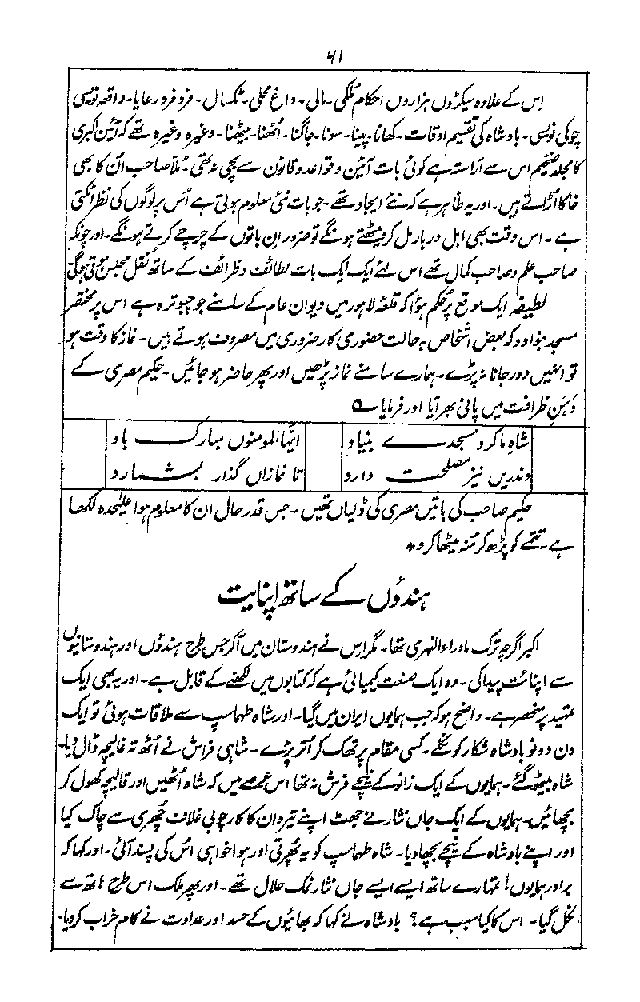 ۶۱
اس کے علاوہ سیکڑوں ہزاروں احکام ملکی۔ مالی۔ داغ محلی۔ ٹکسال۔ فرد فرد رعایا۔ واقعہ نویس
چوکی نویس۔ بادشاہ کی تقسیم اوقات۔ کھانا۔ پینا۔ سونا۔ جاگنا۔ اٹھنا۔ بیٹھنا۔ وغیرہ وغیرہ تھے کہ آئین اکبری
کا مجلد ضخیم اس سے آراستہ ہے کوئی بات آئین و قواعد و قانون سے بچی نہ تھی۔ ملا صاحب ان کا بھی
خاکا اُڑاتے ہیں۔ اور یہ ظاہر ہے کہ نئے ایجاد تھے۔ جو بات نئی معلوم ہوتی ہے اُس پر لوگوں کی نظر اٹکتی
ہے۔ اس وقت بھی اہل دربار مل کر بیٹھتے ہونگے تو ضرور ان باتوں کے چرچے کرتے ہونگے۔ اور چونکہ
صاحب علم و صاحب کمال تھے اس لئے ایک ایک بات لطائف و ظرائف کے ساتھ نقل مجلس ہوتی ہوگی
لطیفہ ایک موقع پر حکم ہؤا کہ قلعہ لاہور میں دیوان عام کے سامنے جو چبوترہ ہے اس پر مختصر
مسجد بنادو کہ بعض اشخاص بہ حالت حضوری کار ضروری میں مصروف ہوتے ہیں۔ نماز کا وقت ہو
تو انہیں دور جانا نہ پڑے۔ ہمارے سامنے نماز پڑھیں اور پھر حاضر ہو جائیں۔ حکیم مصری کے
ذہن ظرافت میں پانی بھر آیا اور فرمایا ؎
شاہ ما کرد مسجدے بنیاد ایہا المومنوں مبارک باد
وندریں نیز مصلحت دارد تا نمازاں گذار بشمارد
حکیم صاحب کی باتیں مصری کی ڈلیاں تھیں۔ جس قدر حال ان کا معلوم ہوا علیحدہ لکھا
ہے۔ تتمے کو پڑھ کر منہ میٹھا کرو٭
ہندؤں کے ساتھ اپنایت
اکبر اگرچہ ترک ماوراء النہری تھا۔ مگر اس نے ہندوستان میں آکر جس طرح ہندؤں اور ہندوستانیوں
سے اپنائت پیدا کی۔ وہ ایک صنعت کیمیائی ہے کہ کتابوں میں لکھنے کے قابل ہے۔ اور یہ بھی ایک
تمہید پر منحصر ہے۔ واضح ہو کہ جب ہمایوں ایران میں گیا۔ اور شاہ طہماسپ سے ملاقات ہوئی تو ایک
دن دونو بادشاہ شکار کو نکلے۔ کسی مقام پر تھک کر اُتر پڑے۔ شاہی فراش نے اُٹھ کر غالیچہ ڈال دیا۔
شاہ بیٹھ گئے۔ ہمایوں کے ایک زانو کے نیچے فرش نہ تھا اس عرصے میں کہ شاہ اُٹھیں اور قالیچہ کھول کر
بچھائیں۔ ہمایوں کے ایک جاں نثار نے جھٹ اپنے تیردان کا کارچوبی غلاف چھری سے چاک کیا
اور اپنے بادشاہ کے نیچے بچھا دیا۔ شاہ طہماسپ کو یہ پھرتی اور ہوا خواہی اُس کی پسند آئی۔ اور کہا کہ
برادر ہمایوں! تمہارے ساتھ ایسے ایسے جاں نثار نمک حلال تھے۔ اور پھر ملک اس طرح ہاتھ سے
نکل گیا۔ اس کا کیا سبب ہے؟ بادشاہ نے کہا کہ بھائیوں کے حسد اور عداوت نے کام خراب کر دیا۔